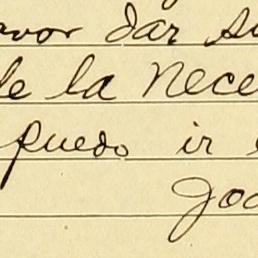 avor dar su
de la nece
puedo ir
Joa